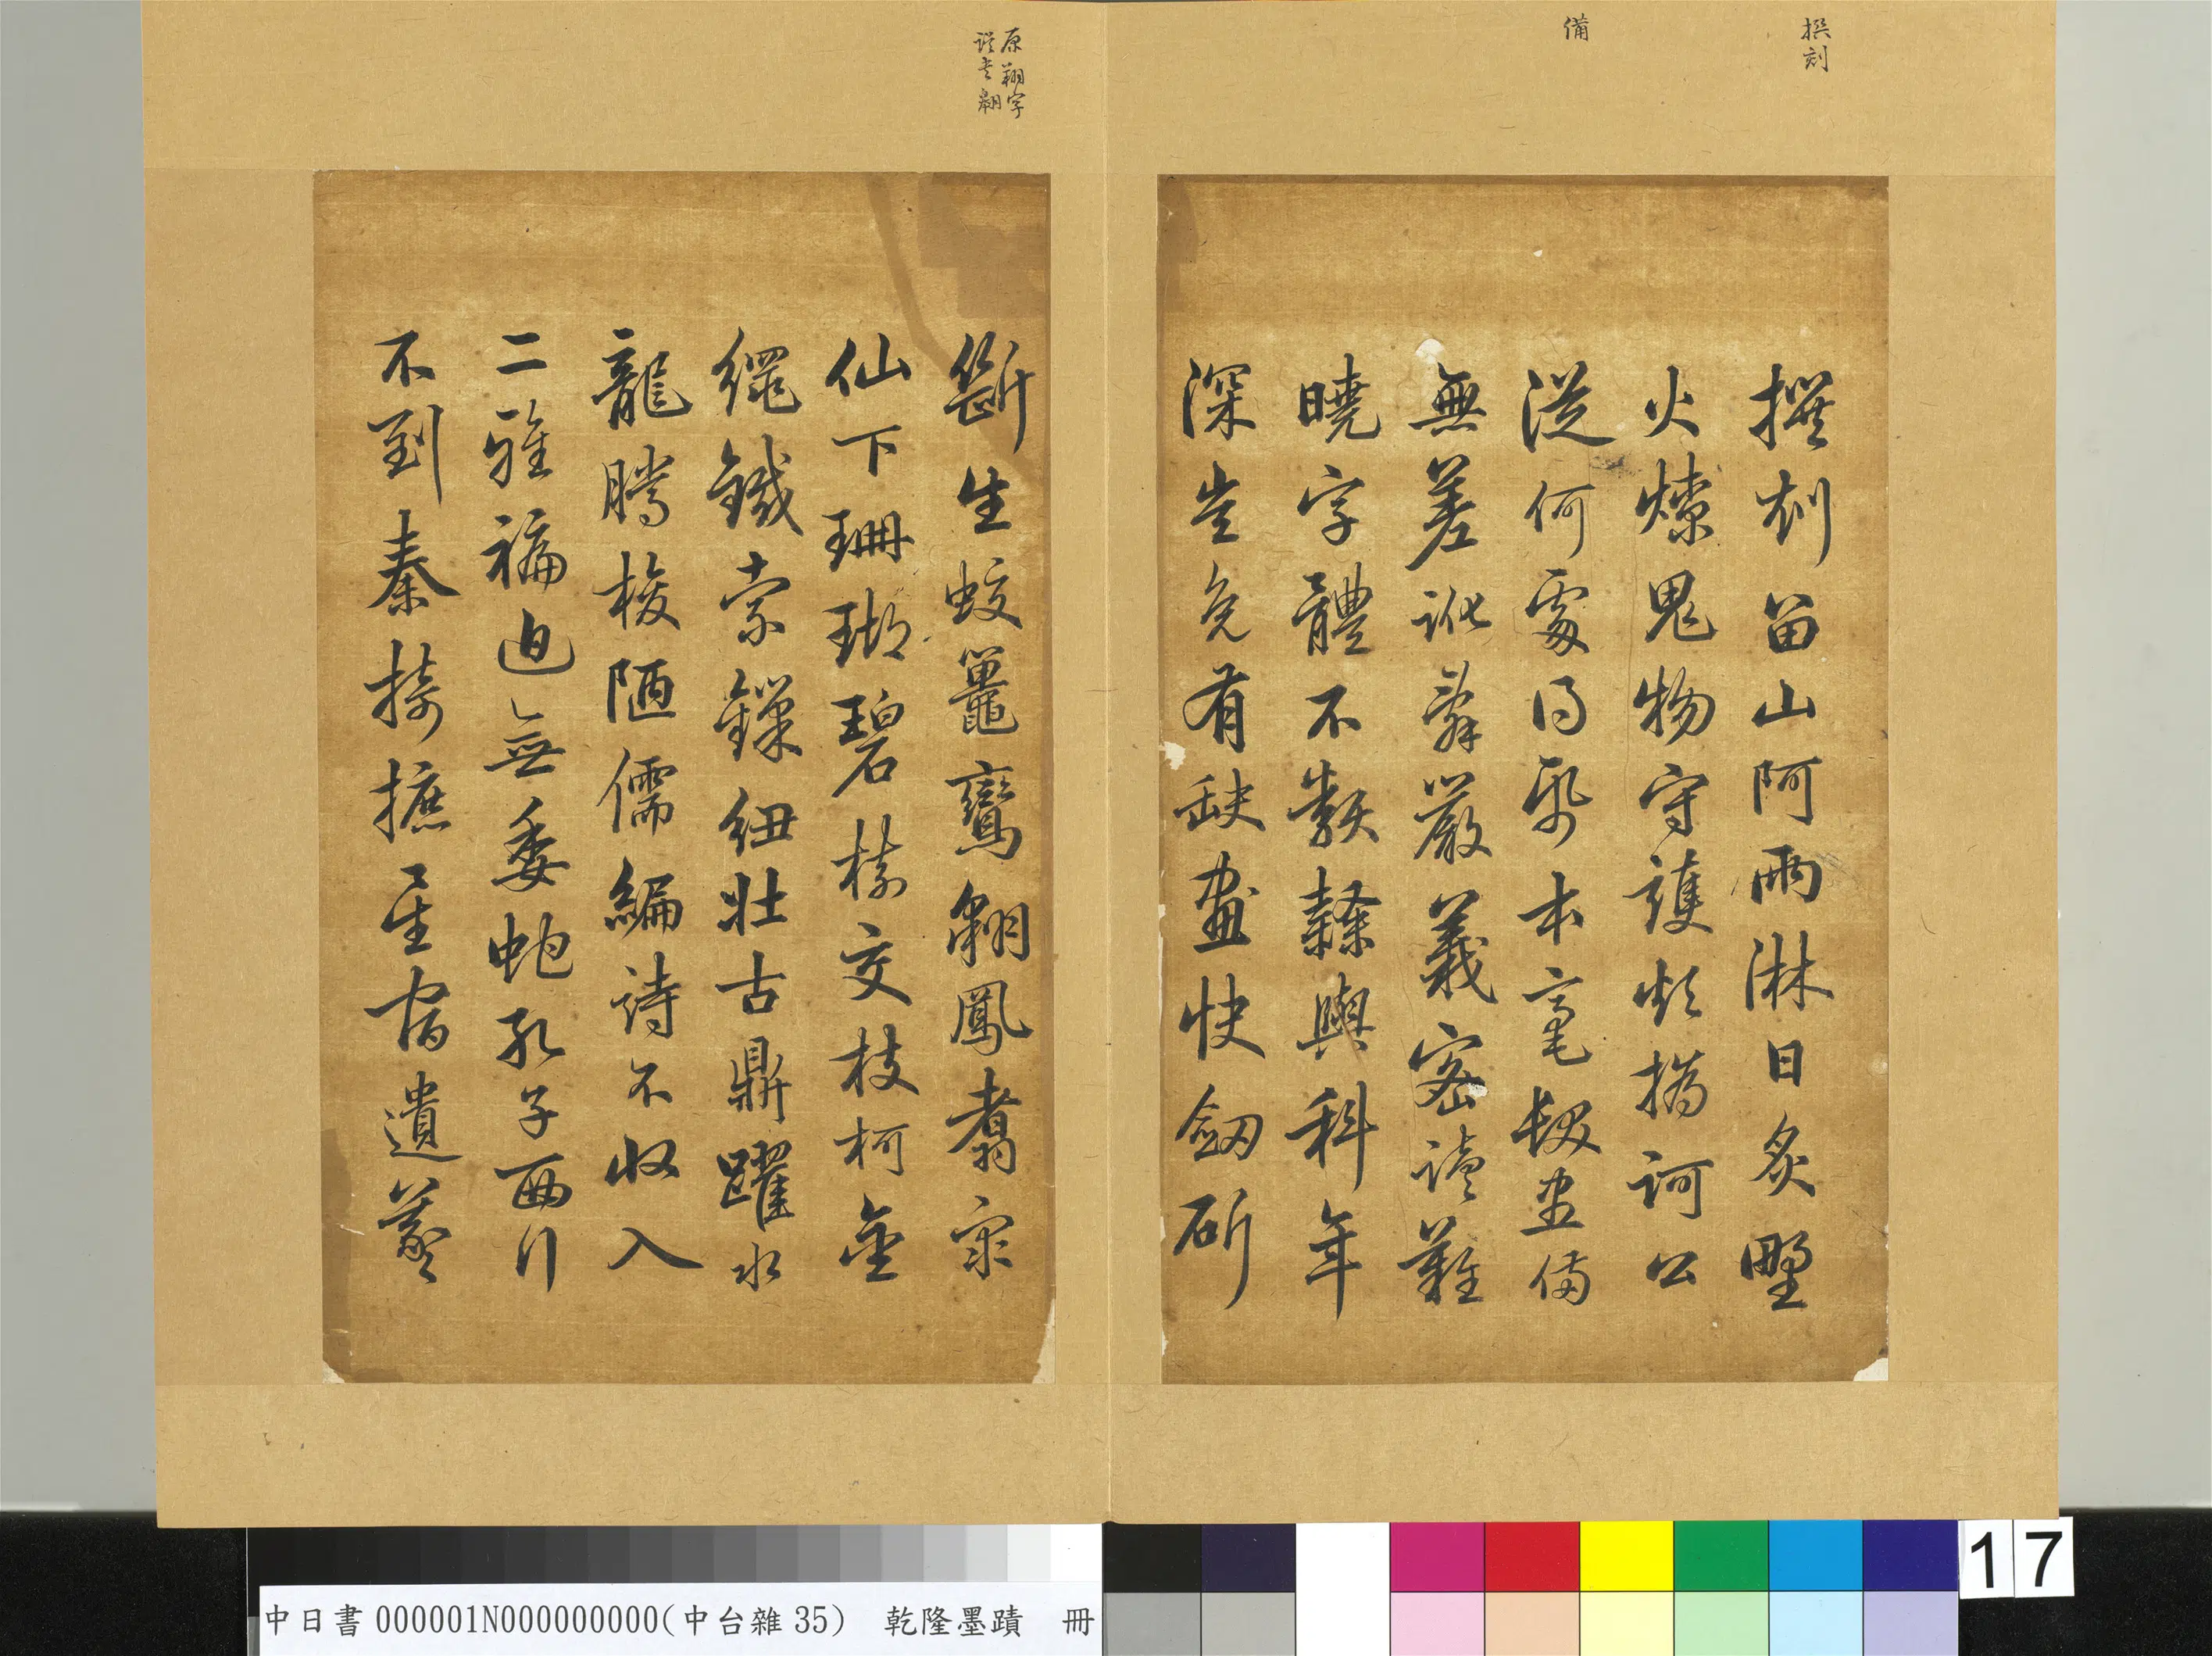 撰刻
備
撰刻留山阿雨淋日炙野
火燎鬼物守護煩撝訶公
從何處得紙本毫髮盡備
無差訛辭嚴義密讀難
曉字體不類隸與科年
深豈免有缺畫快劒斫
原翔字
誤書翱
斷生蛟鼉鸞翱鳳翥眾
仙下珊瑚碧樹交枝柯金
繩鐵索鏁紐壯古鼎躍水
龍騰梭陋儒編詩不收入
二雅褊迫無委蛇孔子西行
不到秦掎摭星宿遺羲
中日書000001N000000000(中台雜35) 乾隆墨蹟 冊
17